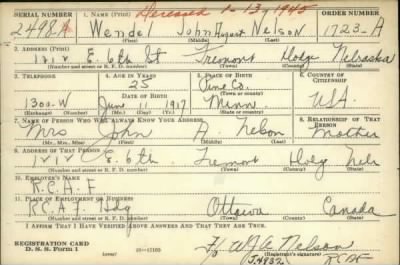 SERIAL NUMBER 1. NAME (Print) Deceased 1-13, 1945 ORDER NUMBER
2498A Wendel John August Nelson 1723-A
(First) (Middle) (Last)
2. ADDRESS (Print)
1212 E. 6th St Fremont Dodge Nebraska
(Number and street or R. F. D. number) (Town) (County) (State)
3. TELEPHONE 4. AGE IN YEARS 5. PLACE OF BIRTH 6. COUNTRY OF CITIZENSHIP
25 Pine Co.
DATE OF BIRTH (Town or county)
1300-W June 11 1917 Minn USA
(Mo.) (Day) (Yr.) (State or country)
7. NAME OF PERSON WHO WILL ALWAYS KNOW YOUR ADDRESS 8. RELATIONSHIP OF THAT PERSON
Mrs John A. Nelson Mother
(Mr., Mrs., Miss) (First) (Middle) (Last)
9. ADDRESS OF THAT PERSON
1212 E. 6th Fremont Dodge Nebr
(Number and street or R. F. D. number) (Town) (County) (State)
10. EMPLOYER'S NAME
R.C.A.F
11. PLACE OF EMPLOYMENT OR BUSINESS
R.C.A.F. Hdq Ottawa Canada
(Number and street or R. F. D. number) (Town) (County) (State)
I AFFIRM THAT I HAVE VERIFIED ABOVE ANSWERS AND THAT THEY ARE TRUE.
REGISTRATION CARD
D. S. S. Form 1 (over) W J A Nelson
(Registrant's signature)
J.4832 RCAF